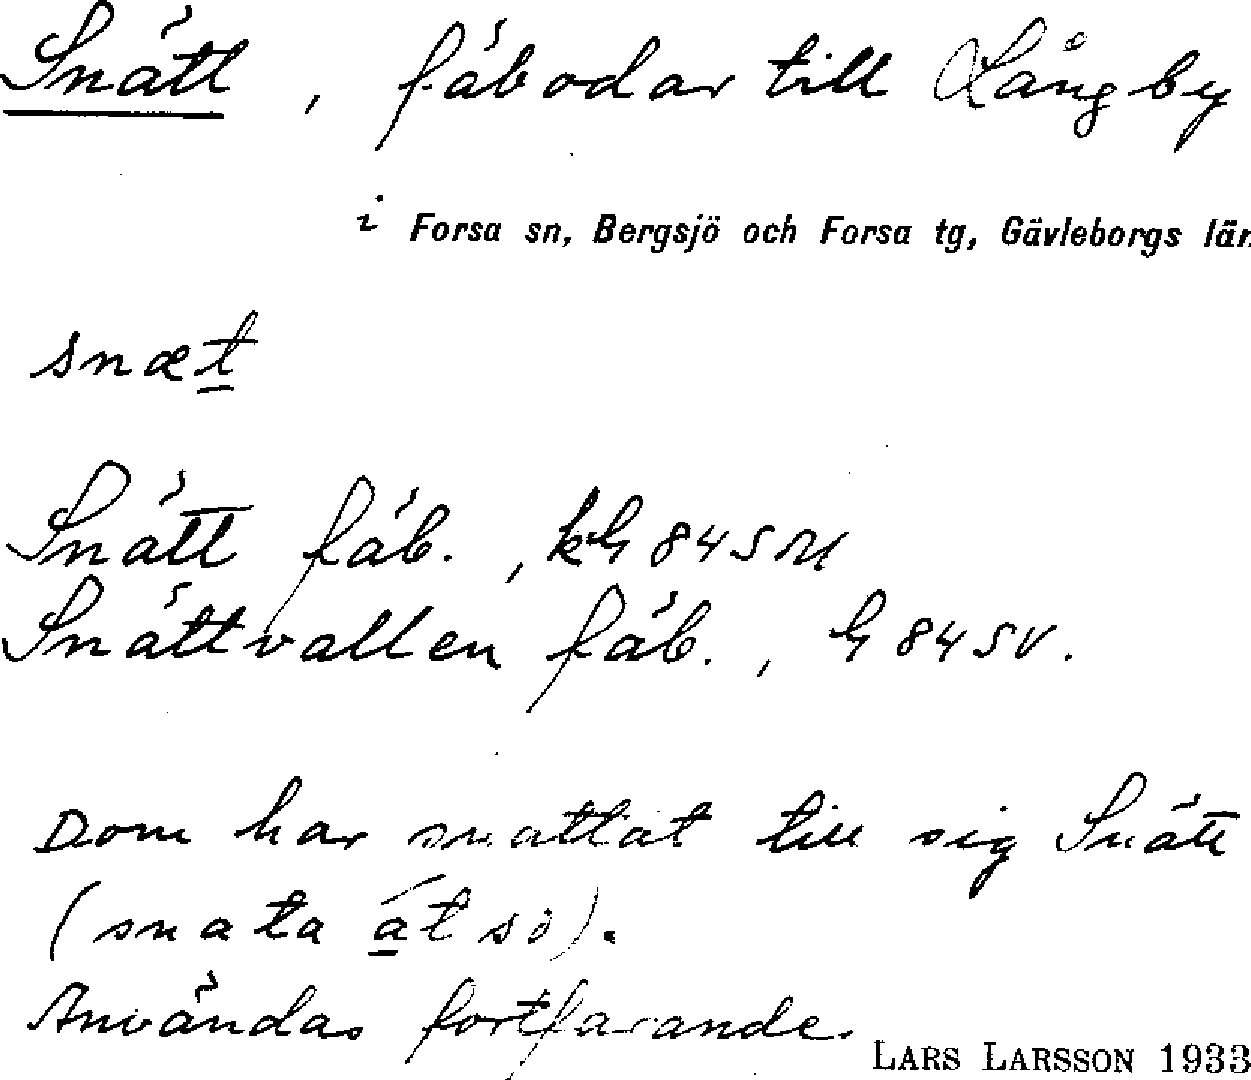 Snätt, fäbodar till Långby
i Forsa sn, Bergsjö och Forsa tg, Gävleborgs län
snæt
Snätt fäb., kG 84 SM
Snättvallen fäb., G 84 SV.
Dom har snattat till sig Snätt
(snata åt sö).
Användas fortfarande.
LARS LARSSON 1933